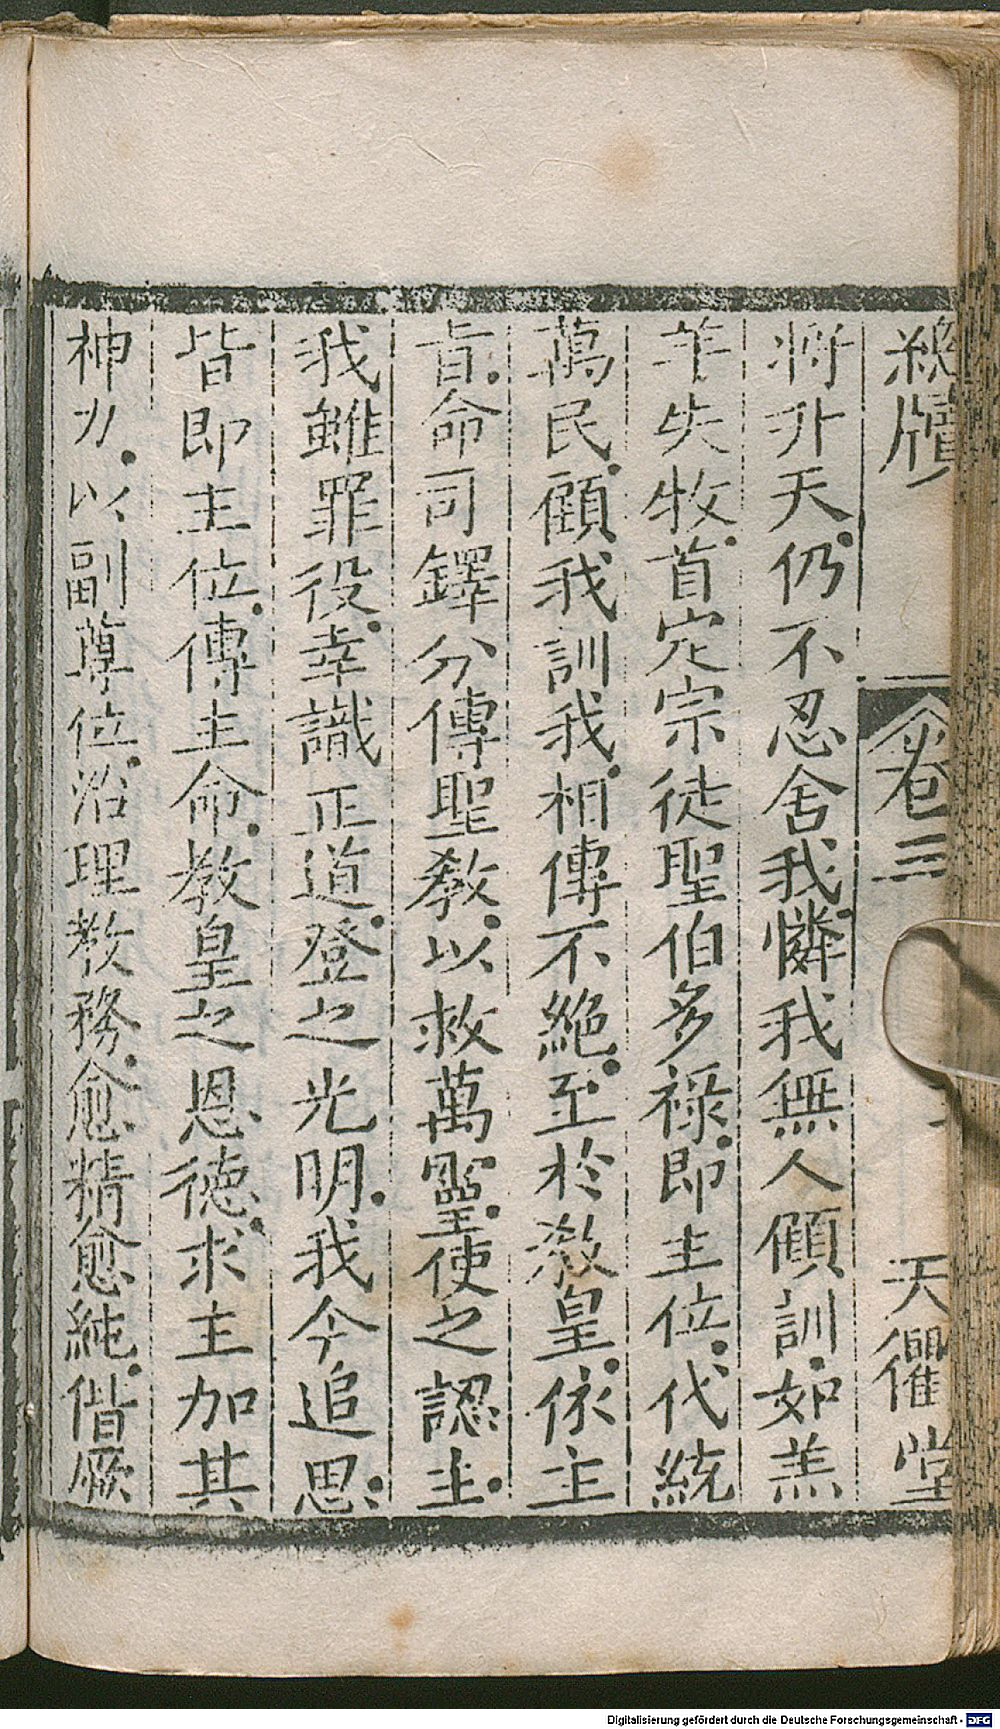 總牘 卷三 天衢堂
將升天。仍不忍舍我。憐我無人頋訓。如羔
羊失牧。首定宗徒聖伯多祿。即主位。代統
萬民。顧我訓我。相傳不絕。至於教皇。依主
旨。命司鐸分傳聖教。以救萬靈。使之認主。
我雖罪役。幸識正道。登之光明。我今追思。
皆即主位。傳主命。教皇之恩德。求主加其
神力。以副尊位。治理教務。愈精愈純。偕厥
Digitalisierung gefördert durch die Deutsche Forschungsgemeinschaft - DFG